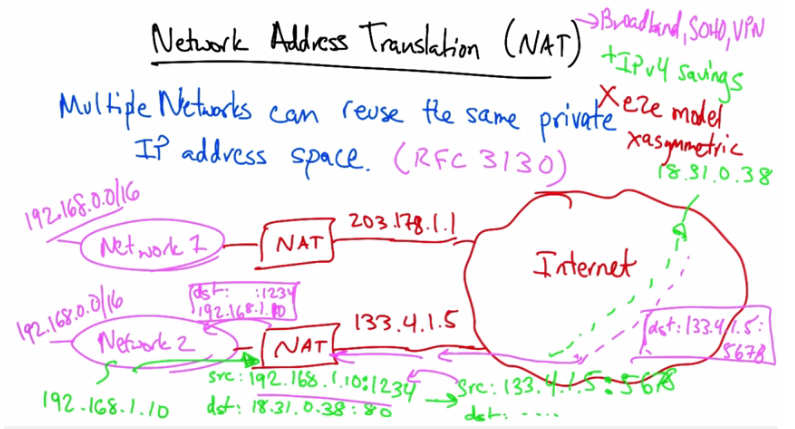 Network Address Translation (NAT)
→Broadband, SOHO, VPN
+IPv4 savings
Multiple Networks can reuse the same private
IP address space. (RFC 3130)
Xe2e model
xasymmetric
18.31.0.38
192.168.0.0/16
Network 1
NAT
203.178.1.1
Internet
192.168.0.0/16
dst: :1234
192.168.1.10
Network 2
NAT
133.4.1.5
dst:133.4.1.5:
5678
192.168.1.10
src:192.168.1.10:1234
dst: 18.31.0.38:80
src:133.4.1.5:5678
dst: ....